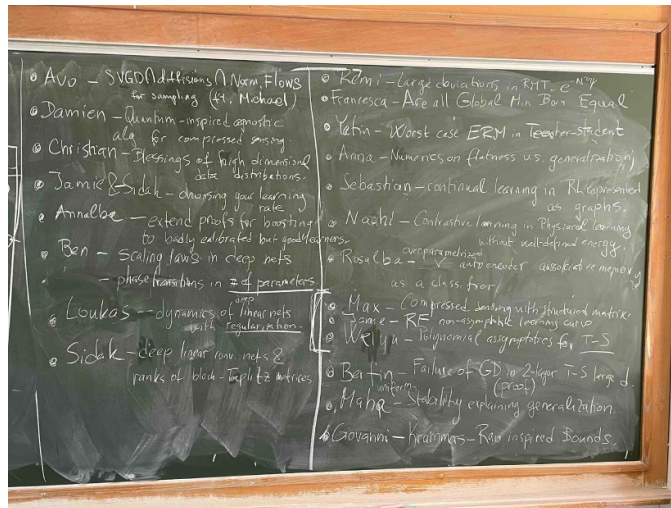 Avo - SVGD ∩ diffusions ∩ Norm. Flows
for sampling (ft. Michael)
Damien - Quantum-inspired agnostic
alg for compressed sensing
Christian - Blessings of high dimensional
data distributions.
Jamie & Sidak - choosing your learning
rate
Annalba - extend proofs for boosting
to badly calibrated but good learners.
Ben - scaling laws in deep nets
- phase transitions in # of parameters
Loukas - dynamics of deep linear nets
with regularization.
Sidak - deep linear conv. nets &
ranks of block-Toeplitz matrices
Remi - Large deviations in RMT.
Francesca - Are all Global Min Born Equal
Yatin - Worst case ERM in Teacher-Student
Anna - Numerics on flatness v.s. generalization
Sebastian - continual learning in RL represented
as graphs.
Nachi - Contrastive learning in Physical learning
without well-defined energy
Rosalba - overparametrized autoencoder associative memory
as a classifier
Max - Compressed sensing with structured matrix
Jamie - RF non-asymptotic learning curve
- Polynomial asymptotics for T-S
Bertin - Failure of GD in 2-layer T-S large d.
(proof)
Maha - uniform Stability explaining generalization
Giovanni - - Rao inspired Bounds.